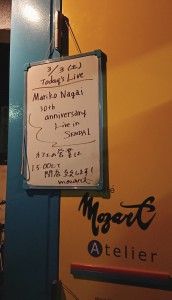 3/3 (土)
Today's Live
Mariko Nagai
30th
anniversary
Live in
SENDAI
カフェの営業は
15:00にて
閉店致します!
mozart
Mozart
Atelier